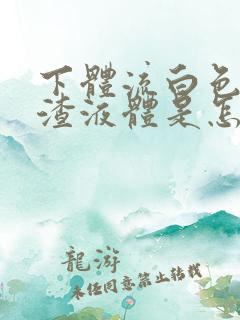 下體流白色
渣液體是怎
龍游
未經同意禁止轉載